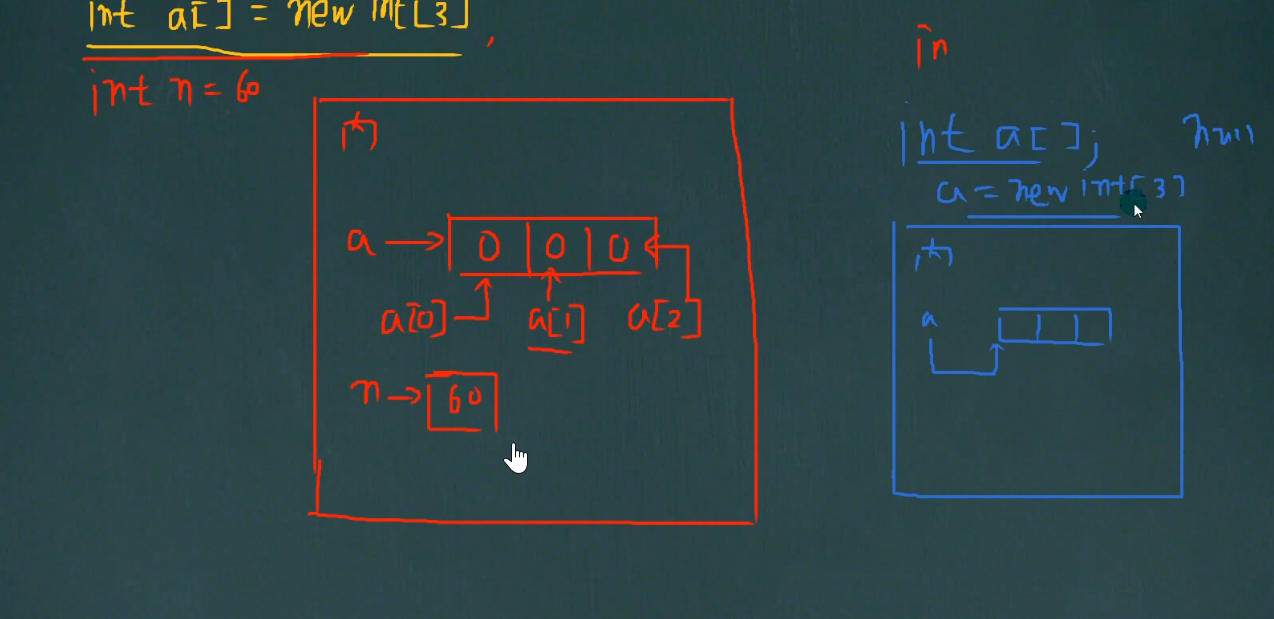 int a[] = new int[3]
int n = 60
内
a
0 0 0
a[0] a[1] a[2]
n
60
in
int a[]; null
a = new int[3]
内
a